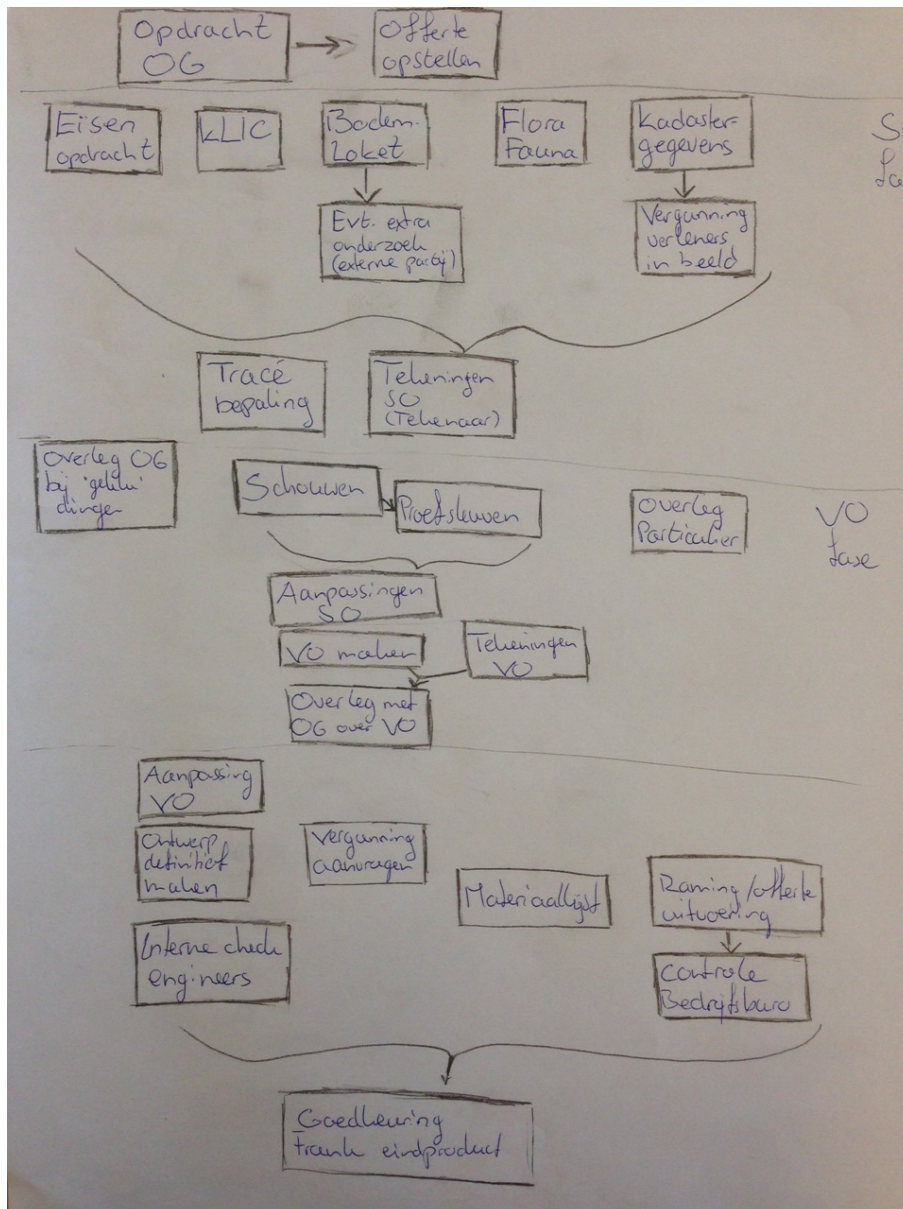 Opdracht
OG
Offerte
opstellen
Eisen
opdracht
KLIC
Bodem-
Loket
Flora
Fauna
Kadaster-
gegevens
S
fa
Evt. extra
onderzoek
(externe partij)
Vergunning
verleners
in beeld
Tracé
bepaling
Tekeningen
SO
(Tekenaar)
Overleg OG
bij
dingen
Schouwen
Proefsleuven
Overleg
Particulier
VO
fase
Aanpassingen
SO
VO maken
Tekeningen
VO
Overleg met
OG over VO
Aanpassing
VO
Ontwerp
definitief
maken
Vergunning
aanvragen
Materiaallijst
Raming/offerte
uitvoering
Interne check
engineers
Controle
Bedrijfsburo
Goedkeuring
Frank eindproduct